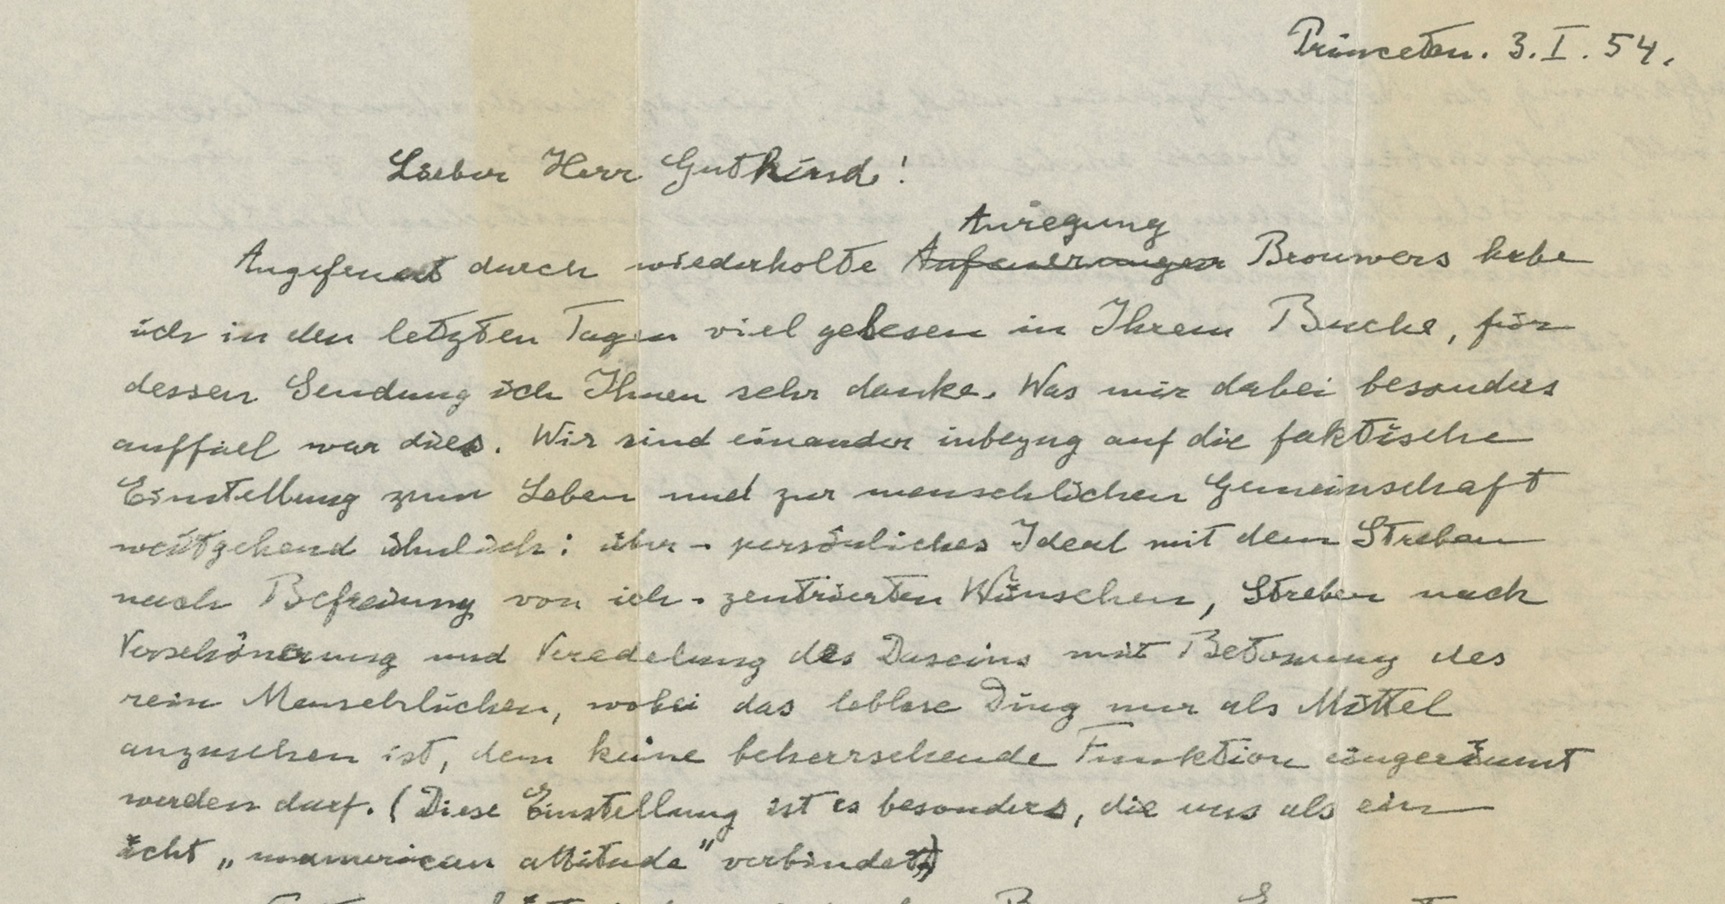 Princeton. 3. I. 54.
Lieber Herr Gutkind!
Anregung
Angefeuert durch wiederholte Aufeuerungen Brouwers habe
ich in den letzten Tagen viel gelesen in Ihrem Buche, für
dessen Sendung ich Ihnen sehr danke. Was mir dabei besonders
auffiel war dies. Wir sind einander inbezug auf die faktische
Einstellung zum Leben und zur menschlichen Gemeinschaft
weitgehend ähnlich: über-persönliches Ideal mit dem Streben
nach Befreiung von ich-zentrierten Wünschen, Streben nach
Verschönerung und Veredelung des Daseins mit Betonung des
rein Menschlichen, wobei das leblose Ding nur als Mittel
anzusehen ist, dem keine beherrschende Funktion eingeräumt
werden darf. (Diese Einstellung ist es besonders, die uns als ein
echt „unamerican attitude" verbindet.)